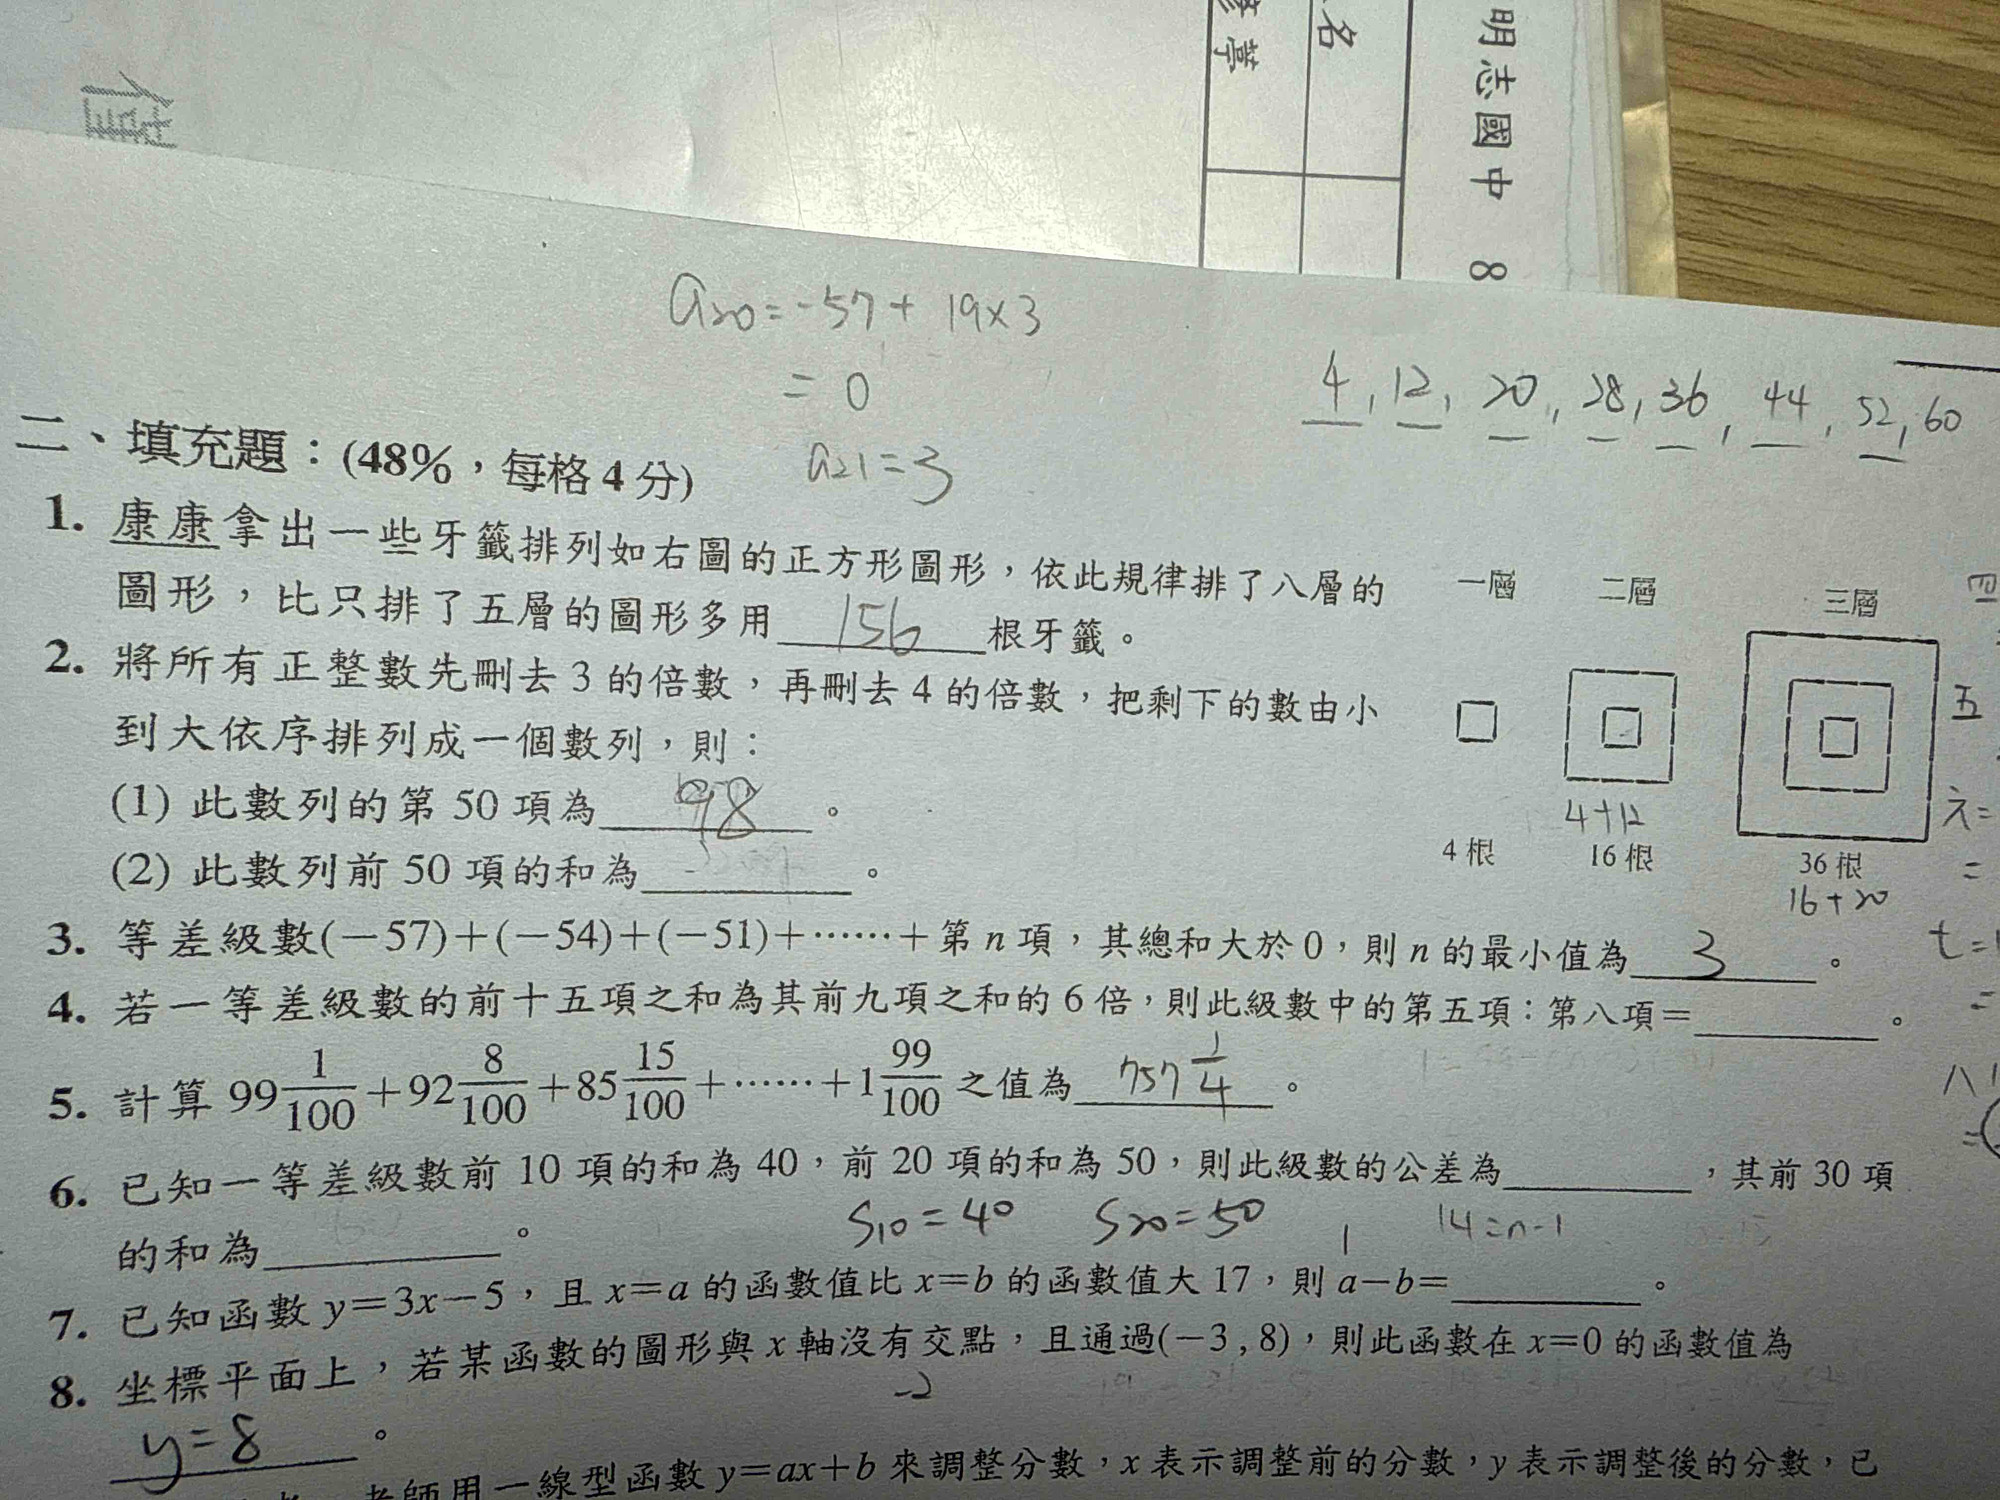 明志國中 8
名
a20=-57+19×3
=0
a21=3
4, 12, 20, 28, 36, 44, 52, 60
二、填充題：(48%，每格4分)
1. 康康拿出一些牙籤排列如右圖的正方形圖形，依此規律排了八層的
圖形，比只排了五層的圖形多用 156 根牙籤。
一層 二層 三層 四
五
4+12
4根 16根 36根
16+20
2. 將所有正整數先刪去3的倍數，再刪去4的倍數，把剩下的數由小
到大依序排列成一個數列，則：
(1) 此數列的第50項為 98 。
(2) 此數列前50項的和為 。
3. 等差級數(－57)＋(－54)＋(－51)＋……＋第n項，其總和大於0，則n的最小值為 3 。
4. 若一等差級數的前十五項之和為其前九項之和的6倍，則此級數中的第五項：第八項＝ 。
5. 計算 99 1/100＋92 8/100＋85 15/100＋……＋1 99/100 之值為 757 1/4 。
6. 已知一等差級數前10項的和為40，前20項的和為50，則此級數的公差為 ，其前30項
的和為 。
S10=40 S20=50 14=n-1
7. 已知函數y＝3x－5，且x＝a的函數值比x＝b的函數值大17，則a－b＝ 。
8. 坐標平面上，若某函數的圖形與x軸沒有交點，且通過(－3,8)，則此函數在x＝0的函數值為
-2
y=8 。
老師用一線型函數y＝ax＋b來調整分數，x表示調整前的分數，y表示調整後的分數，已